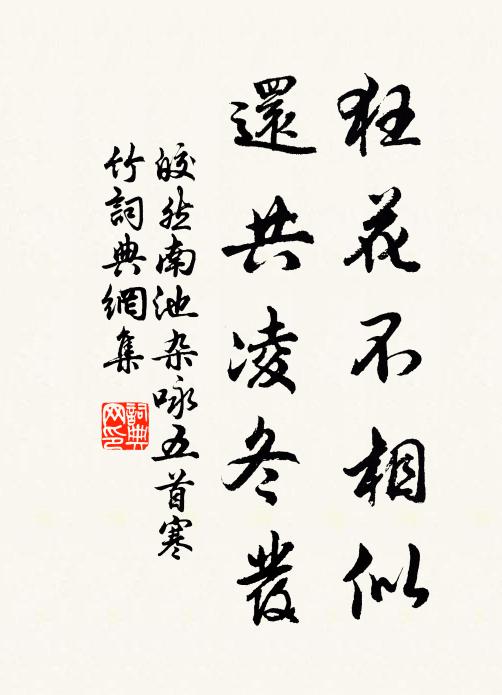 狂花不相似
還共凌冬發
皎然南池杂咏五首寒
竹詞典網集
詞典网印